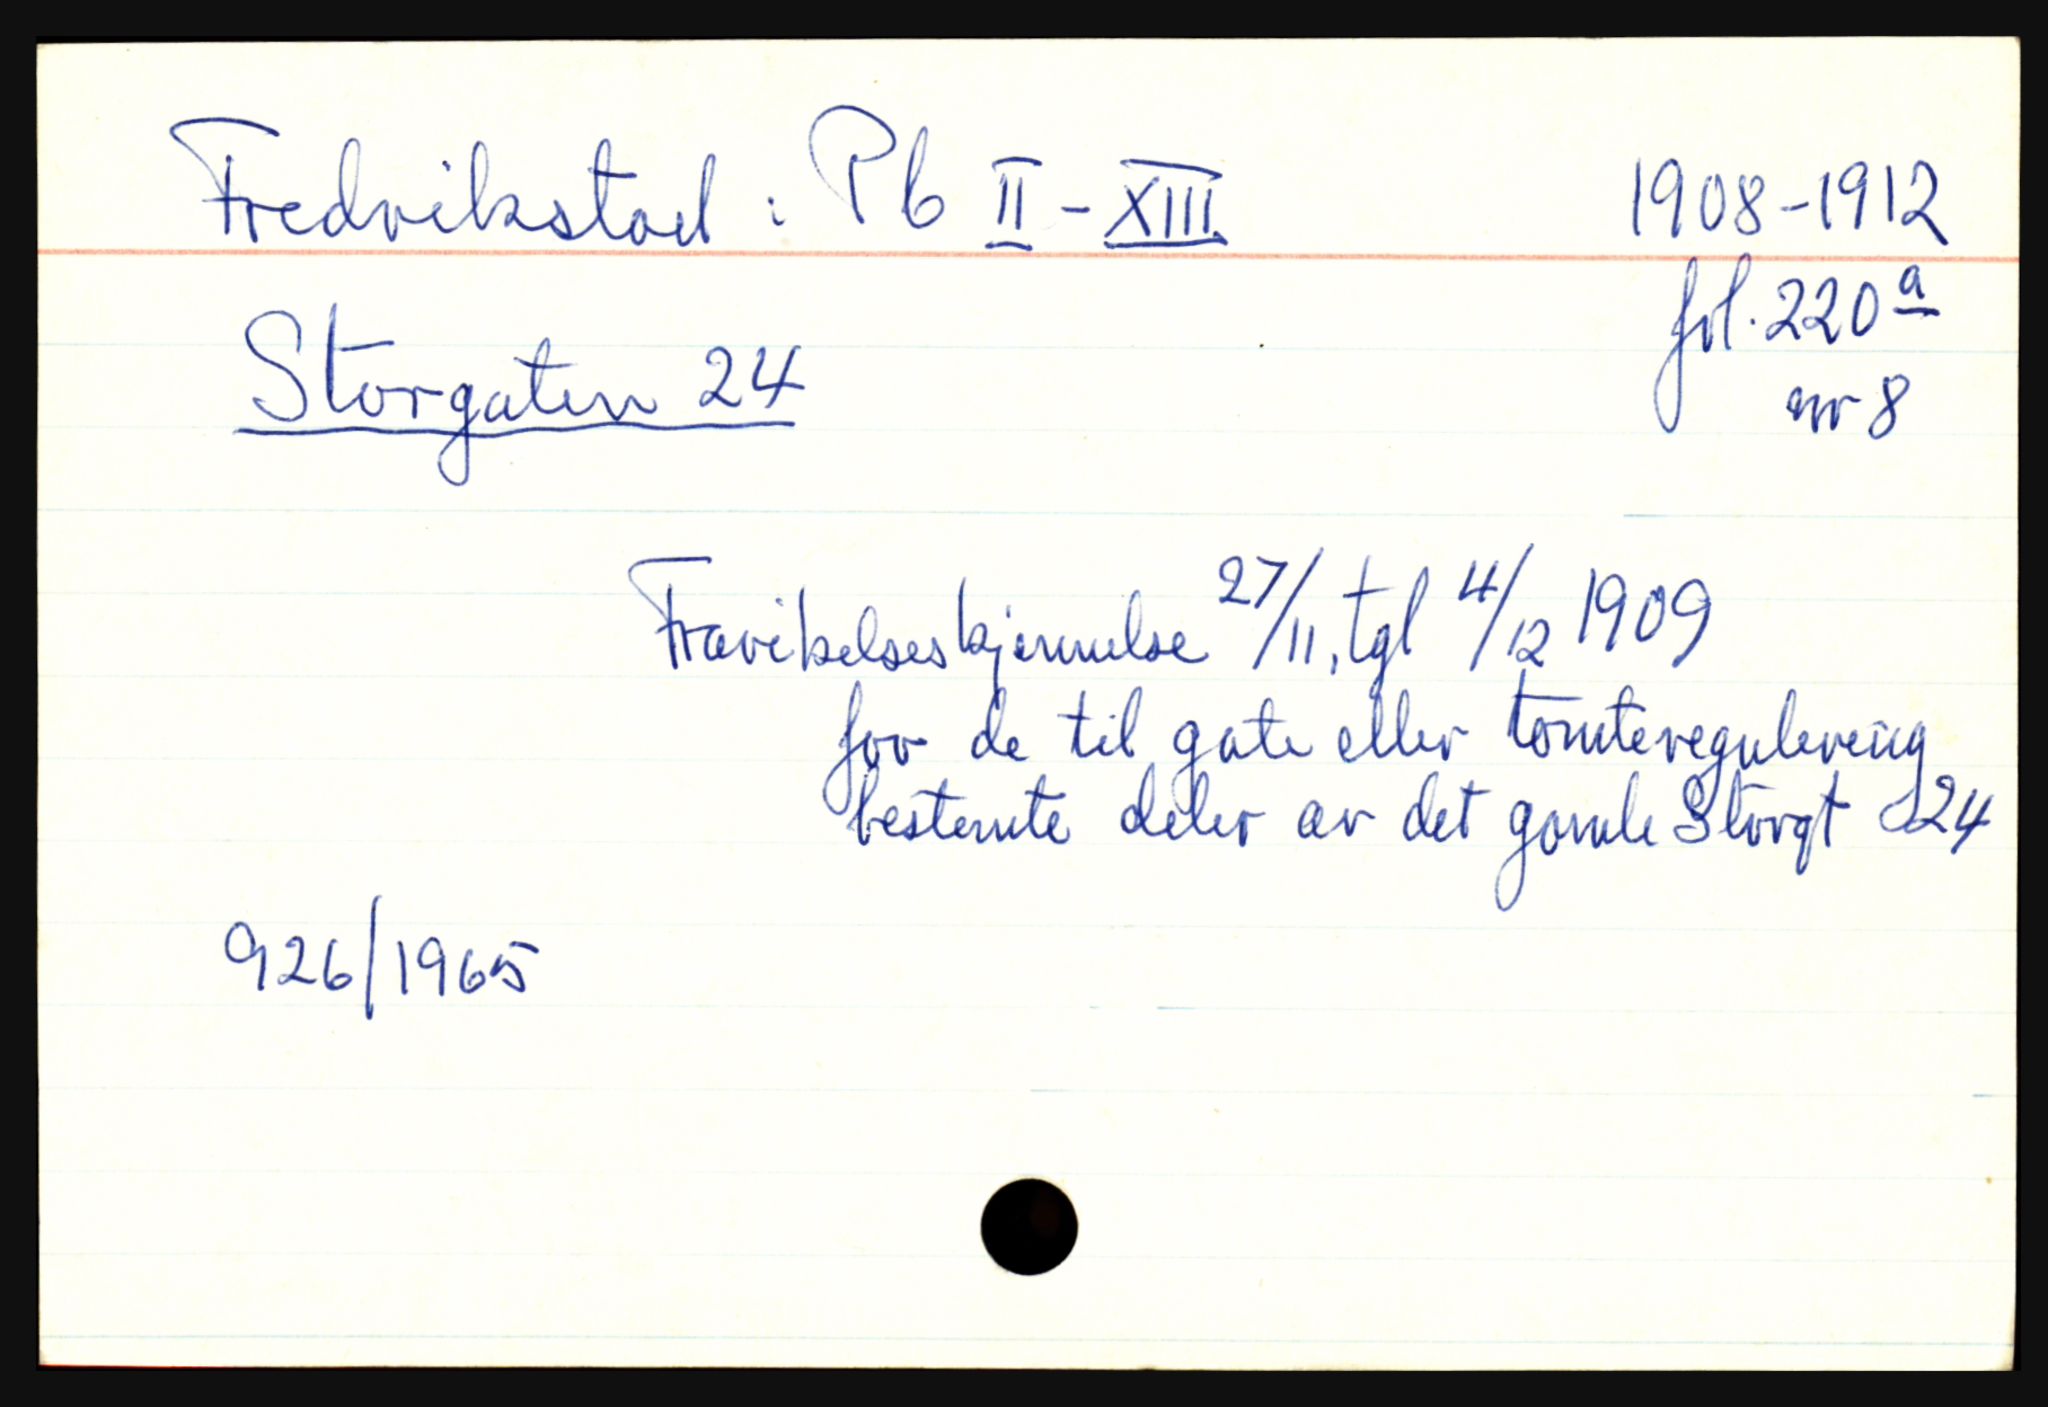 Fredrikstad : Pb II - XIII 1908-1912
fol. 220 a
Storgaten 24
nr 8
Fravikelseskjennelse 27/11, tgl 4/12 1909
for de til gate eller tomteregulering
bestemte deler av det gamle Storgt 24
926/1965